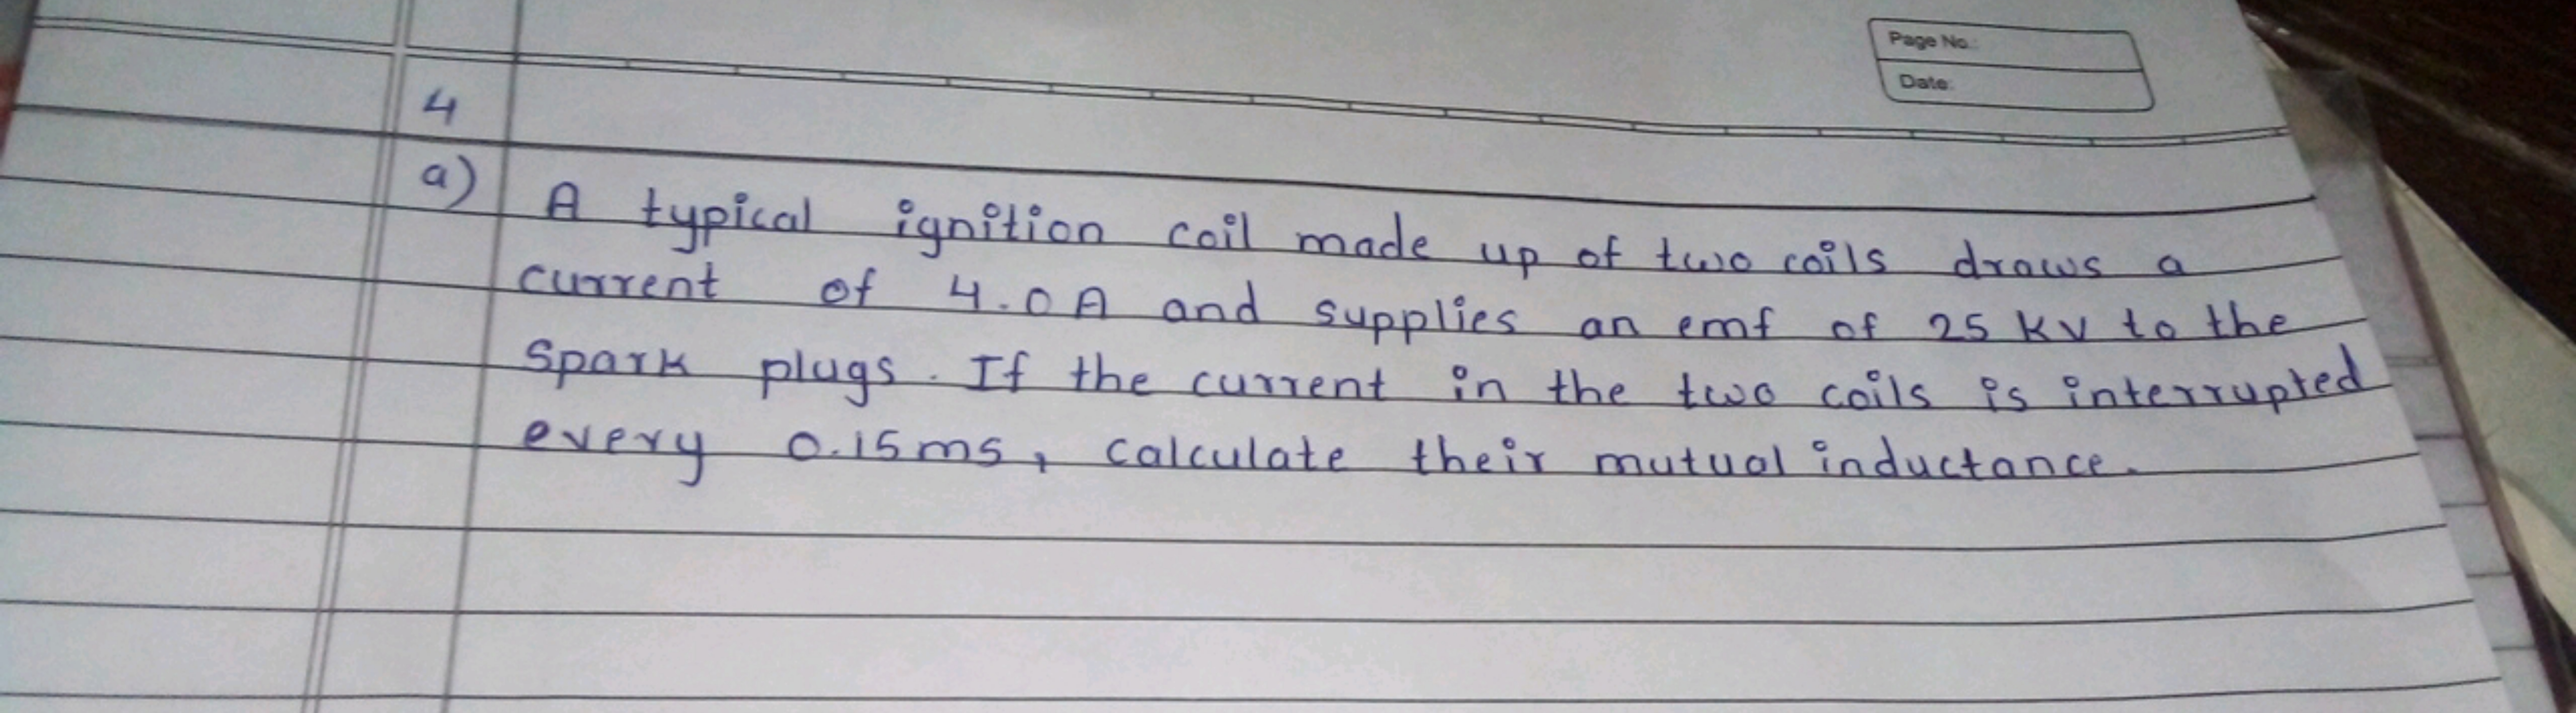 Page No.:
Date:
4
a) A typical ignition coil made up of two coils draws a
current of 4.0 A and supplies an emf of 25 KV to the
spark plugs. If the current in the two coils is interrupted
every 0.15ms, calculate their mutual inductance.